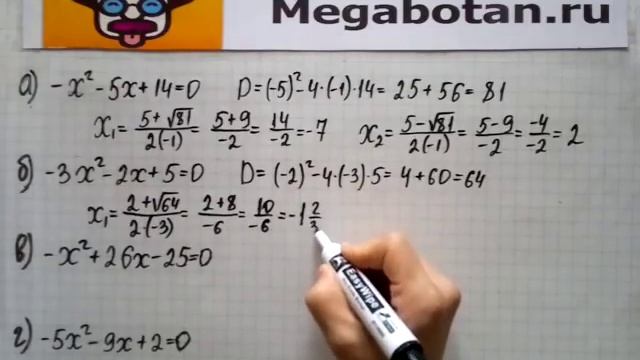 Megabotan.ru
а) -x² - 5x + 14 = 0 D = (-5)² - 4·(-1)·14 = 25 + 56 = 81
x₁ = (5+√81)/(2(-1)) = (5+9)/(-2) = 14/(-2) = -7 x₂ = (5-√81)/(2(-1)) = (5-9)/(-2) = -4/(-2) = 2
б) -3x² - 2x + 5 = 0 D = (-2)² - 4·(-3)·5 = 4 + 60 = 64
x₁ = (2+√64)/(2·(-3)) = (2+8)/(-6) = 10/(-6) = -1 2/3
в) -x² + 26x - 25 = 0
г) -5x² - 9x + 2 = 0
EasyWipe